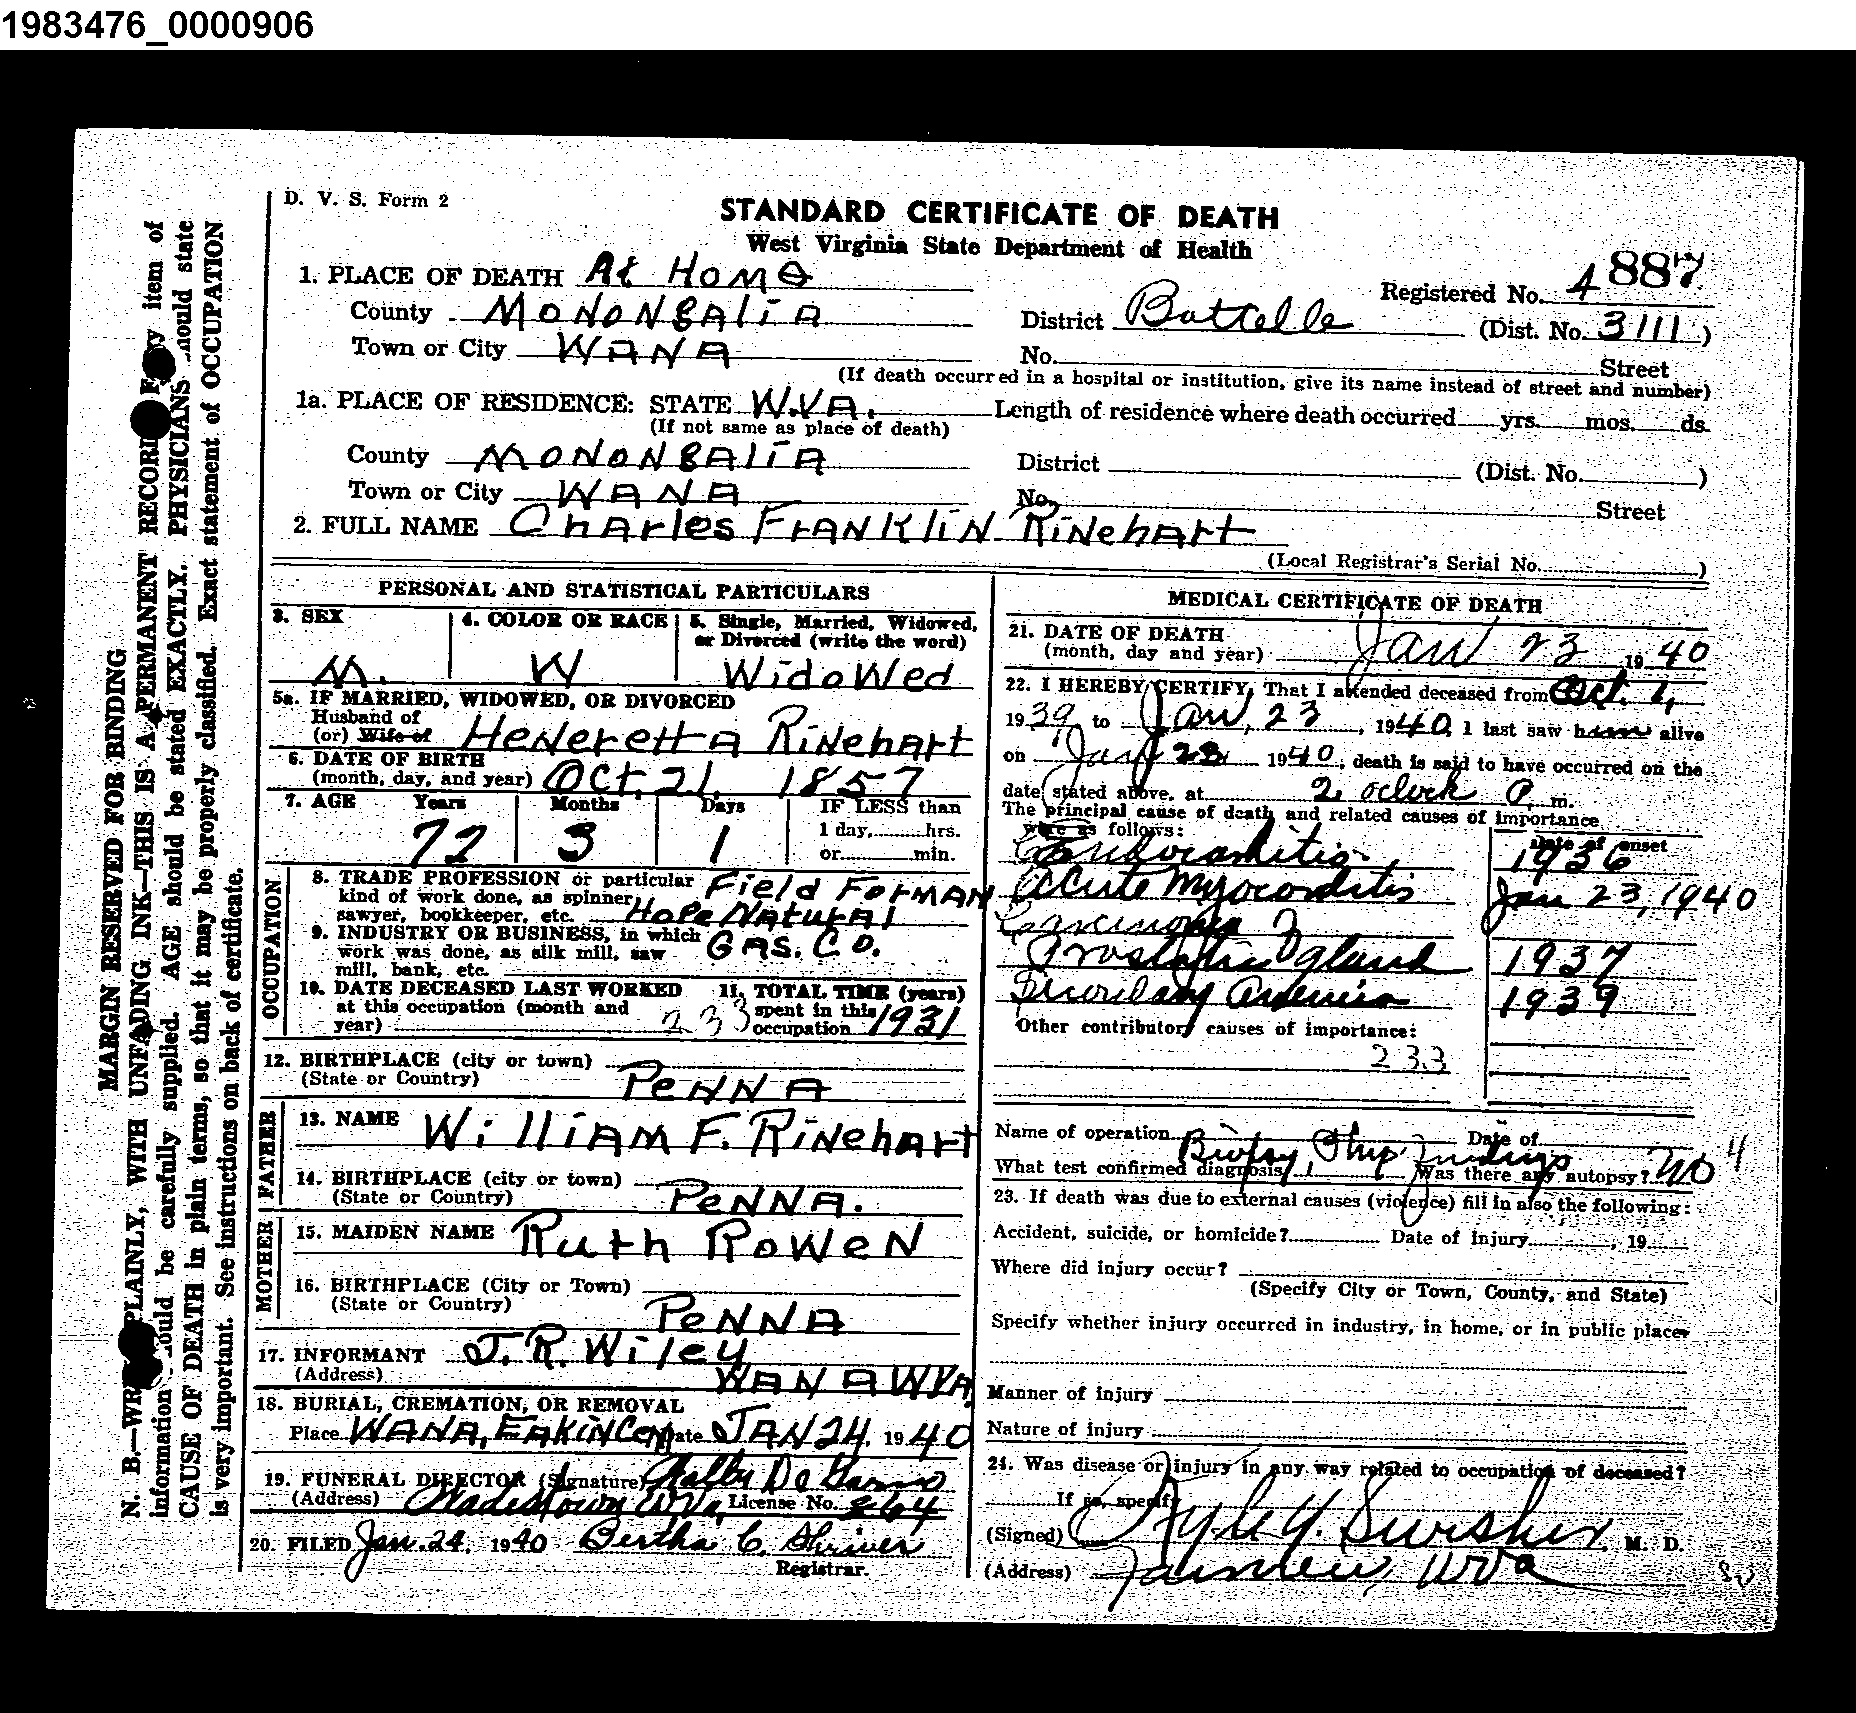 1983476_0000906
D. V. S. Form 2
STANDARD CERTIFICATE OF DEATH
West Virginia State Department of Health
1. PLACE OF DEATH At Home
Registered No. 4 887
County MONONGALIA
District Battelle (Dist. No. 3111)
Town or City WANA
No. Street
(If death occurred in a hospital or institution, give its name instead of street and number)
1a. PLACE OF RESIDENCE: STATE W.VA. Length of residence where death occurred yrs. mos. ds.
(If not same as place of death)
County MONONGALIA
District (Dist. No. )
Town or City WANA
No. Street
2. FULL NAME Charles Franklin Rinehart
(Local Registrar's Serial No. )
PERSONAL AND STATISTICAL PARTICULARS
3. SEX 4. COLOR OR RACE 5. Single, Married, Widowed,
or Divorced (write the word)
M. W Widowed
5a. IF MARRIED, WIDOWED, OR DIVORCED
Husband of
(or) Wife of Heneretta Rinehart
6. DATE OF BIRTH
(month, day, and year) Oct. 21. 1857
7. AGE Years Months Days IF LESS than
72 3 1 1 day, hrs.
or min.
OCCUPATION
8. TRADE PROFESSION or particular Field Forman
kind of work done, as spinner,
sawyer, bookkeeper, etc. Hope Natural
9. INDUSTRY OR BUSINESS, in which Gas. Co.
work was done, as silk mill, saw
mill, bank, etc.
10. DATE DECEASED LAST WORKED 11. TOTAL TIME (years)
at this occupation (month and spent in this
year) 233 occupation 1931
12. BIRTHPLACE (city or town)
(State or Country) PENNA
FATHER
13. NAME William F. Rinehart
14. BIRTHPLACE (city or town)
(State or Country) PENNA.
MOTHER
15. MAIDEN NAME Ruth Rowen
16. BIRTHPLACE (City or Town)
(State or Country) PENNA
17. INFORMANT J. R. Wiley
(Address) WANA W.VA.
18. BURIAL, CREMATION, OR REMOVAL
Place WANA, EAKIN Cem Date JAN 24, 1940
19. FUNERAL DIRECTOR (Signature)
(Address) W.Va. License No. 864
20. FILED Jan. 24, 1940 Bertha C. Shriver
Registrar.
MEDICAL CERTIFICATE OF DEATH
21. DATE OF DEATH
(month, day and year) Jan 23 1940
22. I HEREBY CERTIFY, That I attended deceased from Oct. 1,
1939 to Jan, 23, 1940, I last saw him alive
on Jan 23 1940, death is said to have occurred on the
date stated above, at 2 oclock P. m.
The principal cause of death and related causes of importance
were as follows: Date of onset
Endocarditis, 1936
Acute Myocarditis Jan 23, 1940
Carcinoma of
Prostatic gland 1937
Secondary Anemia 1939
Other contributory causes of importance:
233
Name of operation Date of
What test confirmed diagnosis Biopsy Findings Was there any autopsy? No 4
23. If death was due to external causes (violence) fill in also the following:
Accident, suicide, or homicide? Date of injury , 19
Where did injury occur?
(Specify City or Town, County, and State)
Specify whether injury occurred in industry, in home, or in public place
Manner of injury
Nature of injury
24. Was disease or injury in any way related to occupation of deceased?
If so, specify
(Signed) Swisher M. D.
(Address) Fairview, W Va
MARGIN RESERVED FOR BINDING
N. B.—WRITE PLAINLY, WITH UNFADING INK—THIS IS A PERMANENT RECORD. Every item of
information should be carefully supplied. AGE should be stated EXACTLY. PHYSICIANS should state
CAUSE OF DEATH in plain terms, so that it may be properly classified. Exact statement of OCCUPATION
is very important. See instructions on back of certificate.